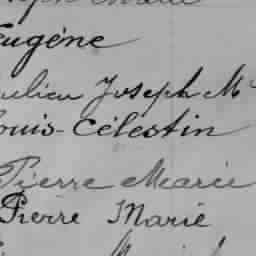 Eugéne
Julien Joseph M
Louis-Célestin
Pierre Marie
Pierre Marie